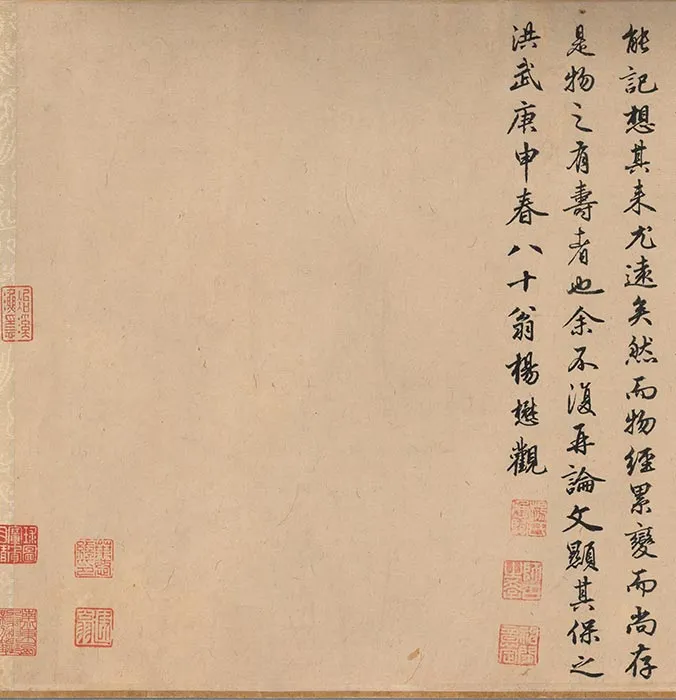 能記想其来尤遠矣然而物經累變而尚存
是物之有壽者也余不復再論文顯其保之
洪武庚申春八十翁楊懋觀